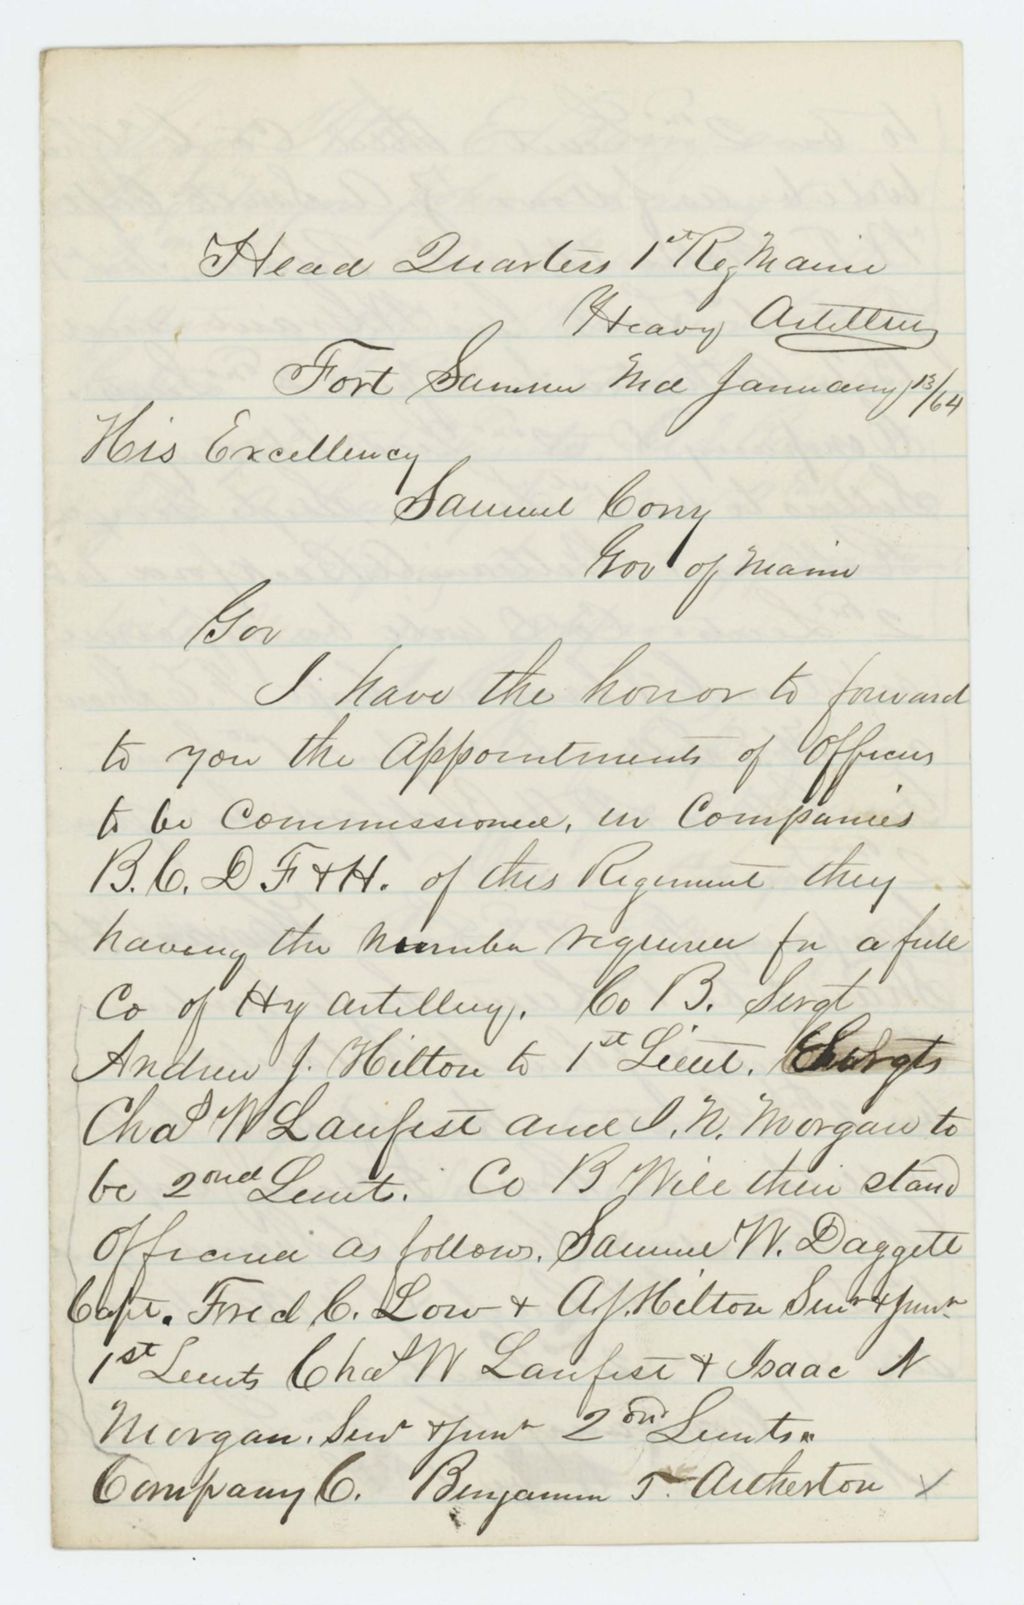 Head Quarters 1st Reg Maine
Heavy Artillery
Fort Sumner Md January 13/64
His Excellency
Samuel Cony
Gov of Maine
Gov
I have the honor to forward
to you the Appointments of Officers
to be Commissioned, in Companies
B. C. D F & H. of this Regiment they
having the number required for a full
Co of Hy Artillery. Co B. Sergt
Andrew J. Hilton to 1st Lieut. Sergts
Chas W Lanfest and I. N. Morgan to
be 2ond Lieut. Co B Will then stand
Officered as follows. Samuel W. Daggett
Capt. Fred C. Low & A. J. Hilton Senr & Junr
1st Lieuts Chas W Lanfest & Isaac N
Morgan. Senr & Junr 2ond Lieuts.
Company C. Benjamin T. Atherton X